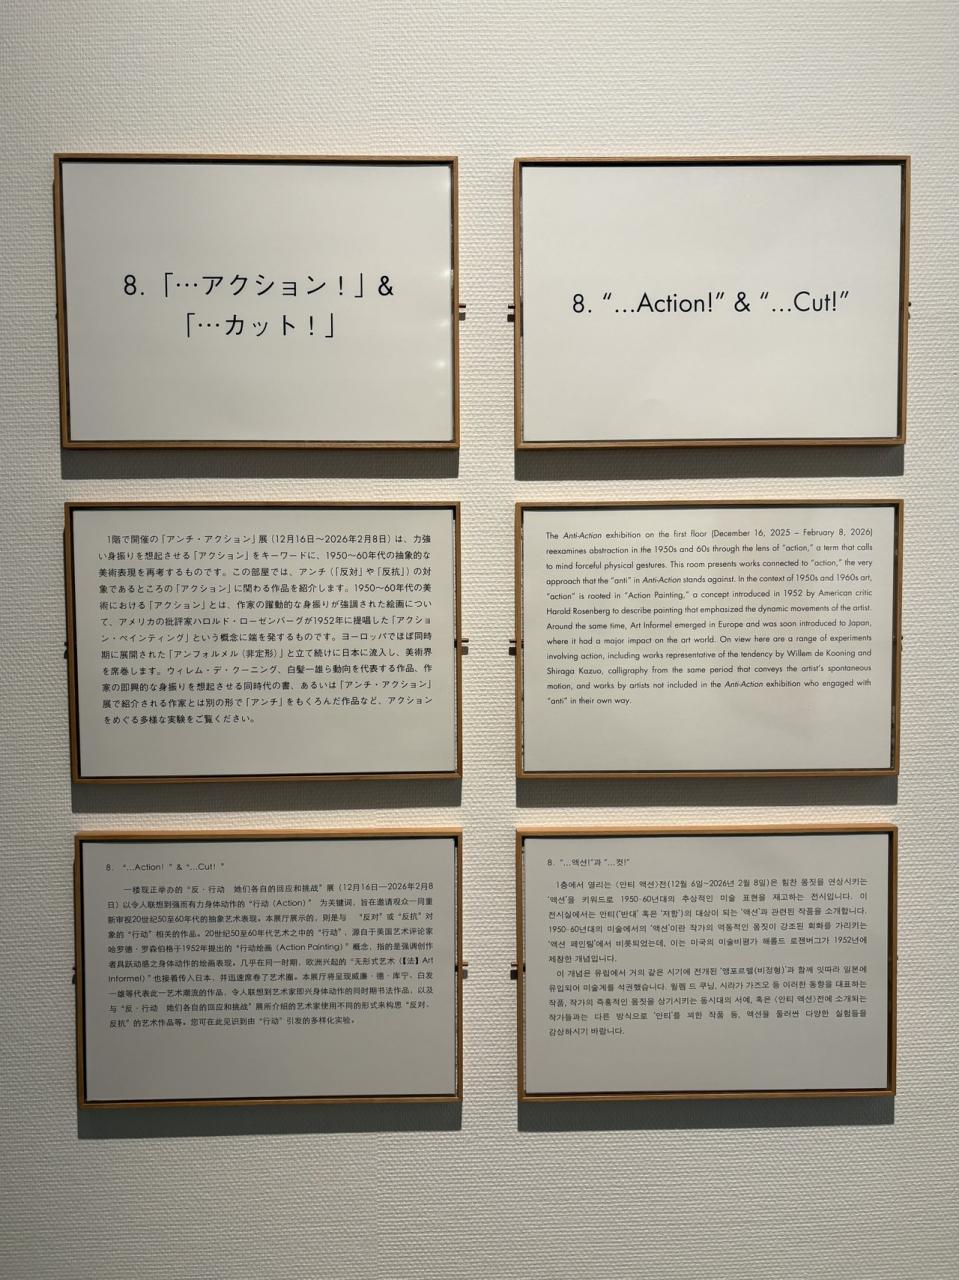 8.「…アクション！」&
「…カット！」
8. “...Action!” & “...Cut!”
1階で開催の「アンチ・アクション」展（12月16日～2026年2月8日）は、力強
い身振りを想起させる「アクション」をキーワードに、1950～60年代の抽象的な
美術表現を再考するものです。この部屋では、アンチ（「反対」や「反抗」）の対
象であるところの「アクション」に関わる作品を紹介します。1950～60年代の美
術における「アクション」とは、作家の躍動的な身振りが強調された絵画につい
て、アメリカの批評家ハロルド・ローゼンバーグが1952年に提唱した「アクショ
ン・ペインティング」という概念に端を発するものです。ヨーロッパでほぼ同時
期に展開された「アンフォルメル（非定形）」と立て続けに日本に流入し、美術界
を席巻します。ウィレム・デ・クーニング、白髪一雄ら動向を代表する作品、作
家の即興的な身振りを想起させる同時代の書、あるいは「アンチ・アクション」
展で紹介される作家とは別の形で「アンチ」をもくろんだ作品など、アクション
をめぐる多様な実験をご覧ください。
The Anti-Action exhibition on the first floor (December 16, 2025 – February 8, 2026)
reexamines abstraction in the 1950s and 60s through the lens of “action,” a term that calls
to mind forceful physical gestures. This room presents works connected to “action,” the very
approach that the “anti” in Anti-Action stands against. In the context of 1950s and 1960s art,
“action” is rooted in “Action Painting,” a concept introduced in 1952 by American critic
Harold Rosenberg to describe painting that emphasized the dynamic movements of the artist.
Around the same time, Art Informel emerged in Europe and was soon introduced to Japan,
where it had a major impact on the art world. On view here are a range of experiments
involving action, including works representative of the tendency by Willem de Kooning and
Shiraga Kazuo, calligraphy from the same period that conveys the artist’s spontaneous
motion, and works by artists not included in the Anti-Action exhibition who engaged with
“anti” in their own way.
8. “...Action! ” & “...Cut! ”
一楼现正举办的“反·行动　她们各自的回应和挑战”展（12月16日—2026年2月8
日）以令人联想到强而有力身体动作的“行动（Action）” 为关键词，旨在邀请观众一同重
新审视20世纪50至60年代的抽象艺术表现。本展厅展示的，则是与 “反对”或“反抗”对
象的“行动”相关的作品。20世纪50至60年代艺术之中的“行动”，源自于美国艺术评论家
哈罗德·罗森伯格于1952年提出的“行动绘画（Action Painting）”概念，指的是强调创作
者具跃动感之身体动作的绘画表现。几乎在同一时期，欧洲兴起的“无形式艺术（【法】Art
Informel）”也接着传入日本，并迅速席卷了艺术圈。本展厅将呈现威廉·德·库宁、白发
一雄等代表此一艺术潮流的作品，令人联想到艺术家即兴身体动作的同时期书法作品，以及
与“反·行动　她们各自的回应和挑战”展所介绍的艺术家使用不同的形式来构思“反对、
反抗”的艺术作品等。您可在此见识到由“行动”引发的多样化实验。
8. “...액션!”과 “...컷!”
1층에서 열리는 〈안티 액션〉전(12월 6일~2026년 2월 8일)은 힘찬 몸짓을 연상시키는
‘액션’을 키워드로 1950-60년대의 추상적인 미술 표현을 재고하는 전시입니다. 이
전시실에서는 안티(‘반대’ 혹은 ‘저항’)의 대상이 되는 ‘액션’과 관련된 작품을 소개합니다.
1950-60년대의 미술에서의 ‘액션’이란 작가의 역동적인 몸짓이 강조된 회화를 가리키는
‘액션 페인팅’에서 비롯되었는데, 이는 미국의 미술비평가 해롤드 로젠버그가 1952년에
제창한 개념입니다.
이 개념은 유럽에서 거의 같은 시기에 전개된 ‘앵포르멜(비정형)’과 함께 잇따라 일본에
유입되어 미술계를 석권했습니다. 윌렘 드 쿠닝, 시라가 가즈오 등 이러한 동향을 대표하는
작품, 작가의 즉흥적인 몸짓을 상기시키는 동시대의 서예, 혹은 〈안티 액션〉전에 소개되는
작가들과는 다른 방식으로 ‘안티’를 꾀한 작품 등, 액션을 둘러싼 다양한 실험들을
감상하시기 바랍니다.